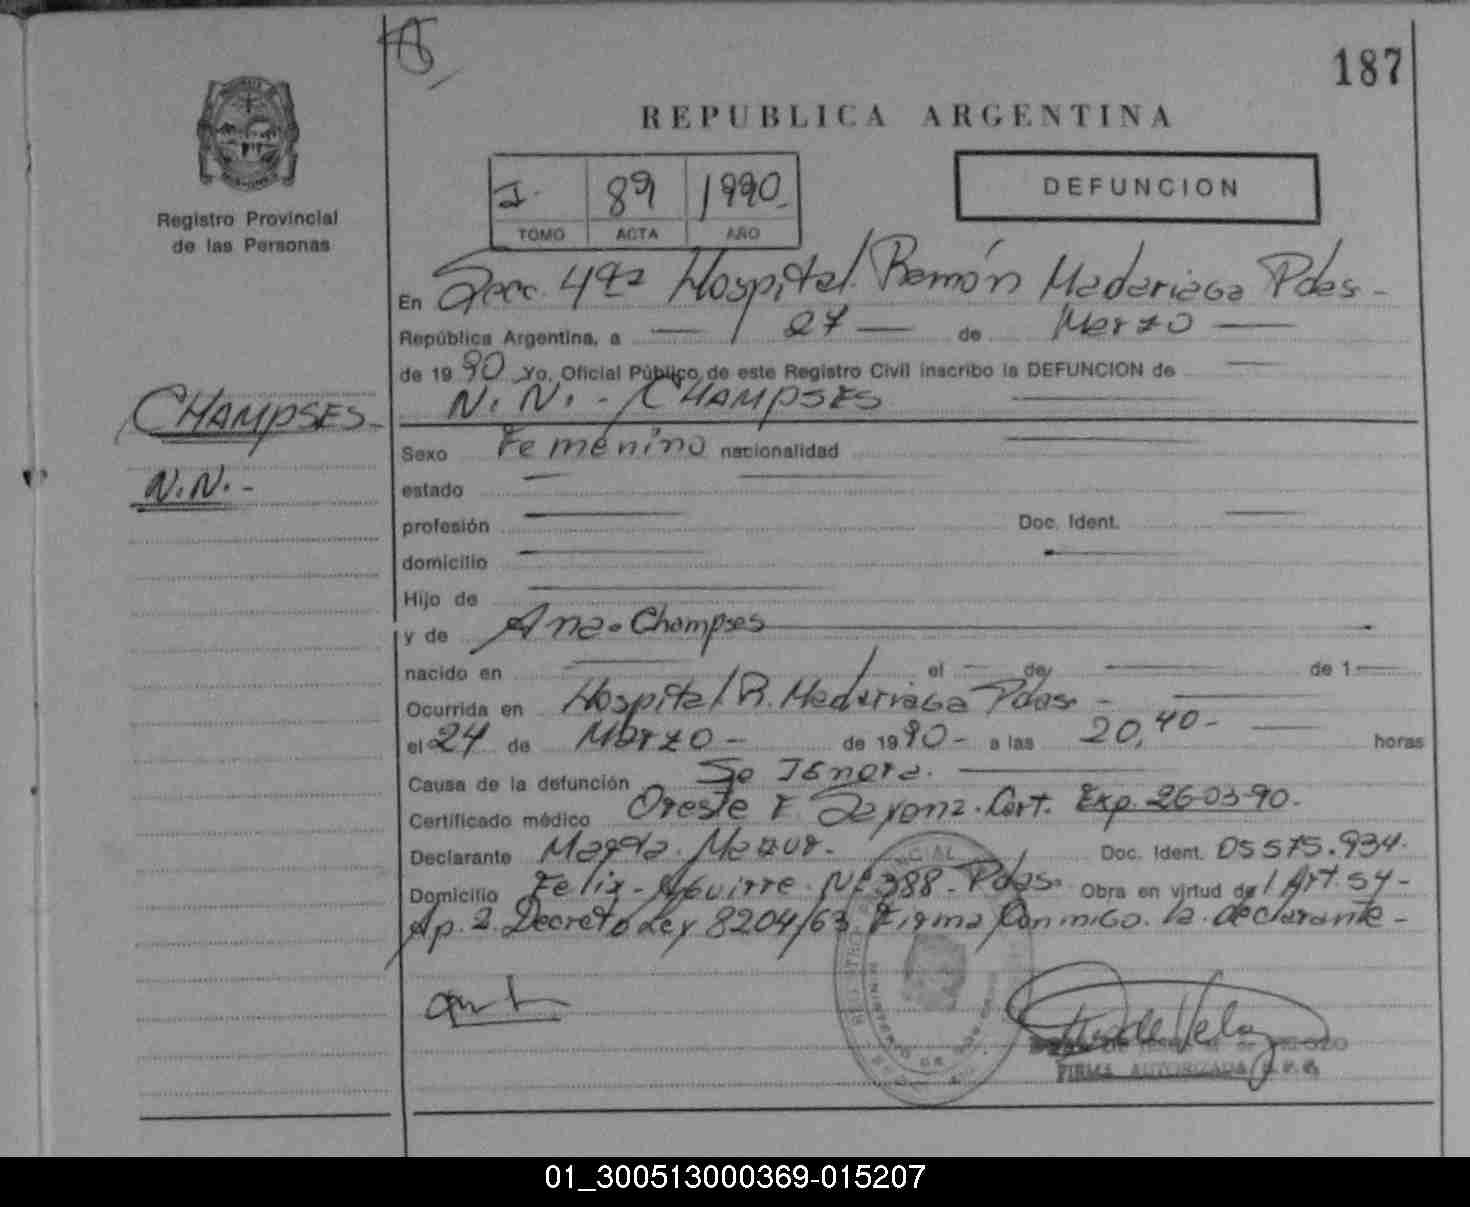 187
REPUBLICA ARGENTINA
Registro Provincial
de las Personas
I- 89 1990-
TOMO ACTA AÑO
DEFUNCION
En Secc. 4ta Hospital Ramón Madariaga Pdas-
República Argentina, a — 27 — de Marzo —
de 1990 Yo, Oficial Público, de este Registro Civil inscribo la DEFUNCION de —
N.N.- CHAMPSES —
CHAMPSES-
N.N.-
Sexo Femenino nacionalidad —
estado —
profesión — Doc. Ident. —
domicilio —
Hijo de —
y de Ana Champses —
nacido en — el — de — de 1 —
Ocurrida en Hospital R. Madariaga Pdas. -
el 24 de Marzo - de 1990- a las 20,40- — horas
Causa de la defunción Se Ignora. —
Certificado médico Oreste F. Cert. Exp. 26-03-90.
Declarante Magda Mazur. Doc. Ident. 05575.934.
Domicilio Felix Aguirre Nº 388- Pdas. Obra en virtud del Art. 54-
Ap. 2 Decreto Ley 8204/63 Firma Conmigo la declarante-
FIRMA AUTORIZADA
01_300513000369-015207